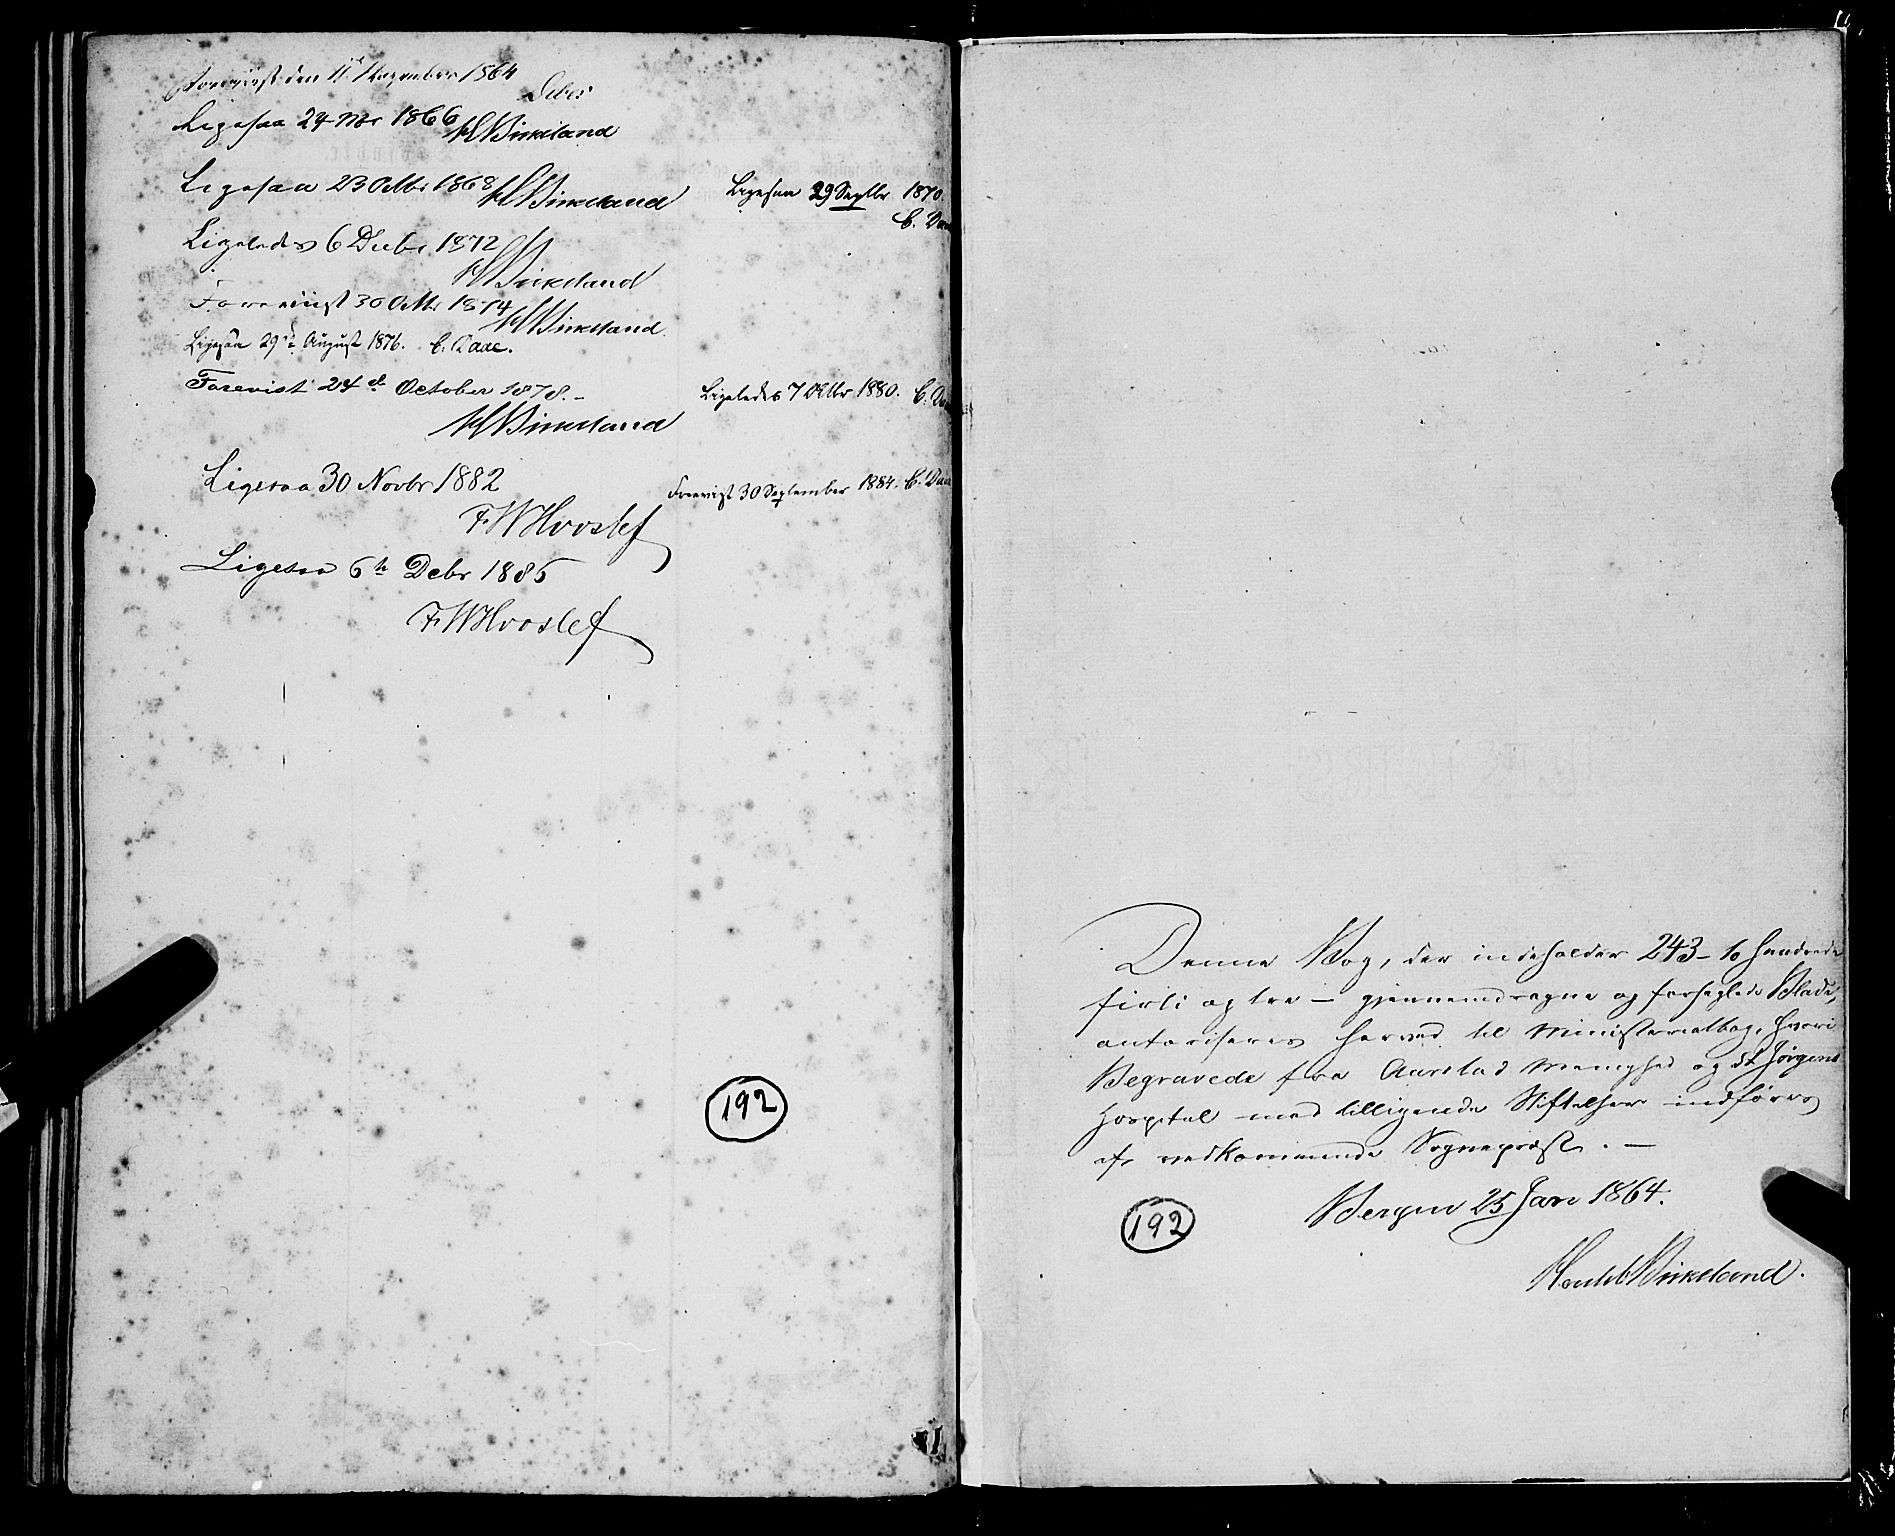 Forevist den 11te November 1864
Ligesaa 24 Nbr 1866
HBirkeland
Ligesaa 23 Octbr 1868 HBirkeland
Ligesaa 29 Septbr 1870.
C. Daae
Ligeledes 6 Decbr 1872
HBirkeland
Forevist 30 Octbr 1874
HBirkeland
Ligesaa 29de August 1876. C. Daae.
Forevist 24de October 1878.-
HBirkeland
Ligeledes 7 Octbr 1880. C. Daae
Ligesaa 30 Novbr 1882
FWHvoslef
Forevist 30 September 1884. C. Daae
Ligesaa 6te Debr 1886
FWHvoslef
192
Denne Bog, der indeholder 243 - to hundrede
firti og tre - gjennemdragne og forseglede Blade,
autoriseres herved til Ministerialbog, hvori
Begravede fra Aarstad Menighed og St Jørgens
Hospital med tilligende Stiftelser indføres
af vedkommende Sognepræst. -
Bergen 25 Jan 1864.
192
Birkeland.